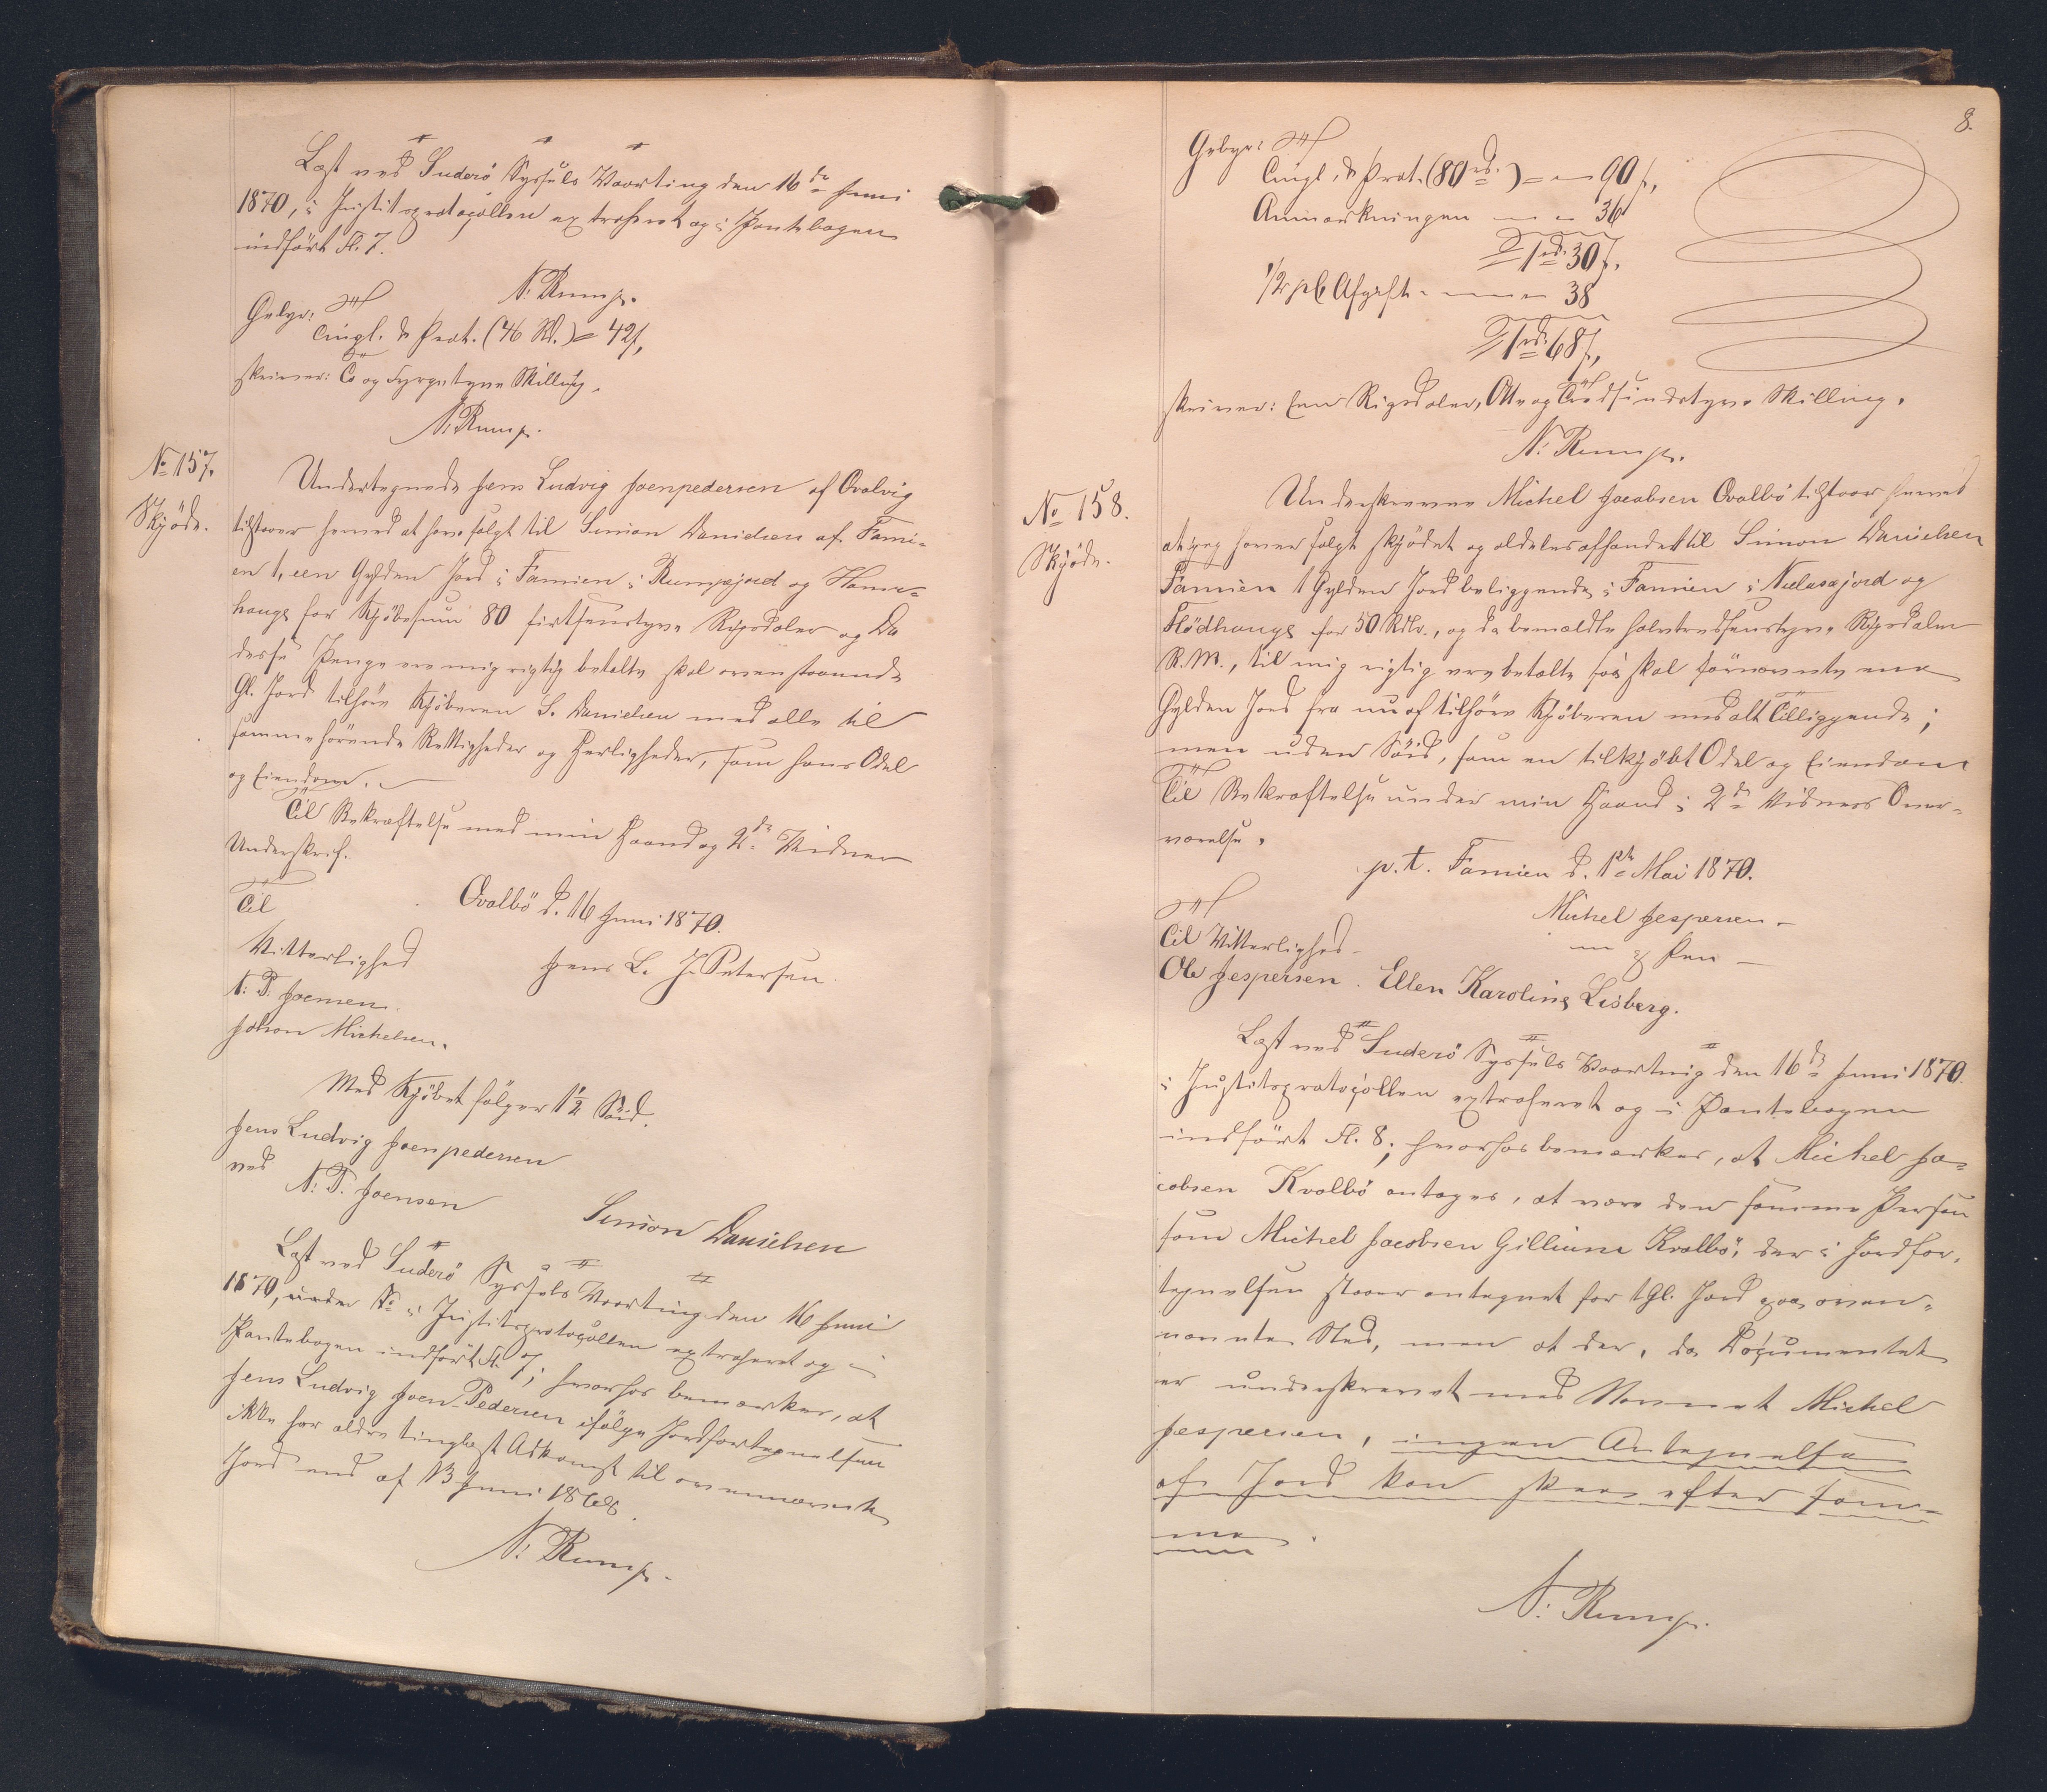 Læst ved Suderö Syssels Vaarting den 16de Juni
1870, i Justitsprotocollen extraheret og i Pantebogen
indført Fl. 7.
N. Rump.
Gebyr:
Tingl. & Prot. (46 Rd.) = 42 s,
skriver: To og Fyrgetyve Skilling.
N. Rump.
No 157.
Skjøde.
Undertegnede Jens Ludvig Joenpedersen af Ovalvig
tilstaaer herved at have solgt til Simon Danielsen af Fami-
en 1, een Gylden Jord i Famien i Rumpajord og Hama-
hauge for Kjøbesum 80 firsenstyve Rigsdaler og Da
desse Penge ere mig rigtig betalte skal ovenstaaende
Gl. Jord tilhøre Kjøberen S. Danielsen med alle til
samme hørende Rettigheder og Herligheder, som hans Odel
og Eiendom.
Til Bekræftelse med min Haand og 2de Vidner
Underskrif.
Ovalbö d. 16 Juni 1870.
Til
Vitterlighed
Jens L. J. Petersen
N. P. Joensen.
Johan Michelsen.
Med Kjøbet følger 1½ Söid.
Jens Ludvig Joenpedersen
ved
N. P. Joensen
Simon Danielsen
Læst ved Suderö Syssels Vaarting den 16 Juni
1870, under No i Justitsprotocollen extraheret og i
Pantebogen indført Fl. 7; hvorhos bemærkes, at
Jens Ludvig Joen-Pedersen ifølge Jordfortegnelsen
ikke har ældre tinglæst Adkomst til ovennævnte
Jord end af 13 Juni 1868.
N. Rump.
8.
Gebyr:
Tingl. & Prot. (80 rd.) = - 90 s,
Anmærkningen - - 36
= 1 rd. 30 s,
1/2 pC Afgift - - 38
= 1 rd. 68 s,
skriver: Een Rigsdaler, Otte og Tredsindstyve Skilling.
N. Rump.
No 158.
Skjøde.
Underskrevne Michel Jacobsen Ovalbö tilstaaer herved
at jeg haver solgt skjødet og aldeles afhandet til Simon Danielsen
Famien 1 Gylden Jord beliggende i Famien i Nielasajord og
Flödhauge for 50 Rdlr., og da bemældte halvtredsenstyve Rigsdaler
R.M., til mig rigtig ere betalte saa skal förnævnte ene
Gylden Jord fra nu af tilhöre Kjøberen med alt Tilliggende;
men uden Söid, som en tilkjøbt Odel og Eiendom
Til Bekræftelse under min Haand i 2de Vidners Over-
værelse.
p. t. Famien d. 1ste Mai 1870.
Michel Jespersen -
m f Pen -
Til Vitterlighed -
Ole Jespersen. Ellen Karoline Lisberg.
Læst ved Suderö Syssels Vaarting den 16de Juni 1870.
i Justitsprotocollen extraheret og i Pantebogen
indført Fl. 8; hvorhos bemærkes, at Michel Ja-
cobsen Kvalbö antages, at være den samme Person
som Michel Jacobsen Gilliume Kvalbö, der i Jordfor-
tegnelsen staaer antegnet for 1 Gl. Jord paa oven-
nævnte Sted, men at der, da Documentet
er underskrevet med Navnet Michel
Jespersen, ingen Antegnelse
af Jord kan skee efter sam-
me.
N. Rump.